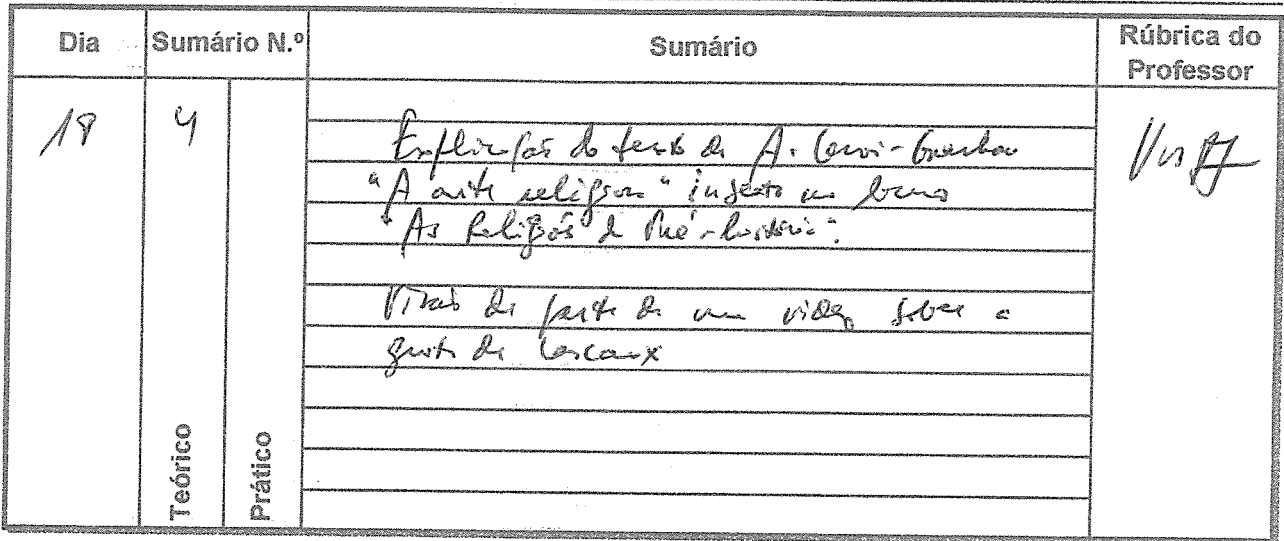 Dia Sumário N.º Sumário Rúbrica do Professor
18 4
Explicação do texto de A. Leroi-Gourhan
"A arte religiosa" inserto no livro
"As Religiões da Pré-história".
Visão de parte de um video sobre a
gruta de Lascaux
Teórico Prático